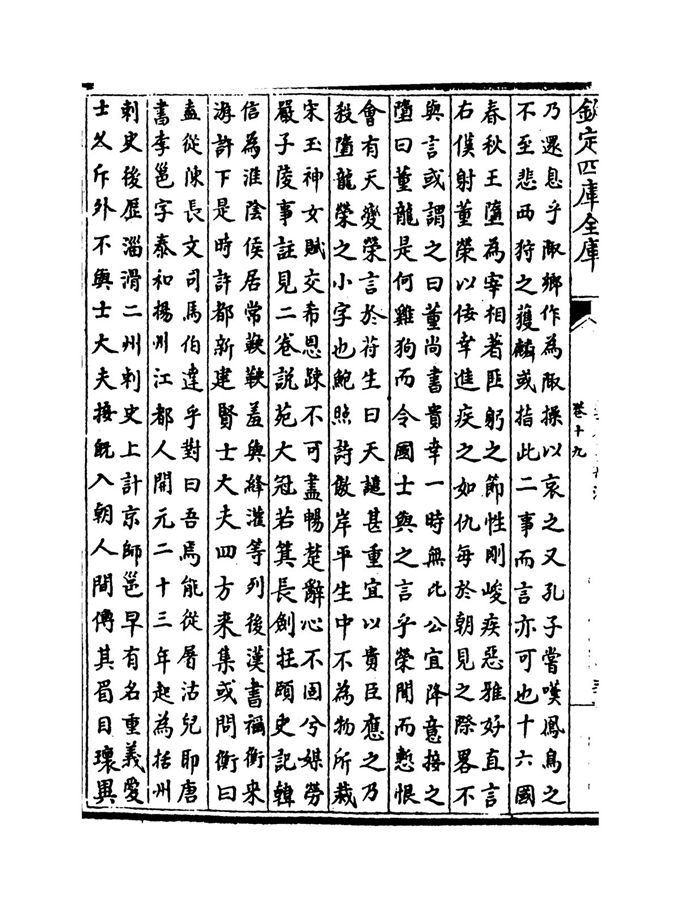 欽定四庫全書
卷十九
乃還息乎陬鄉作為陬操以哀之又孔子嘗嘆鳳鳥之
不至悲西狩之獲麟或指此二事而言亦可也十六國
春秋王墮為宰相著匪躬之節性剛峻疾惡雅好直言
右僕射董榮以佞幸進疾之如仇每於朝見之際畧不
與言或謂之曰董尚書貴幸一時無比公宜降意接之
墮曰董龍是何雞狗而令國士與之言乎榮聞而慙恨
會有天變榮言於苻生曰天譴甚重宜以貴臣應之乃
殺墮龍榮之小字也鮑照詩傲岸平生中不為物所裁
宋玉神女賦交希恩疎不可盡暢楚辭心不固兮媒勞
嚴子陵事註見二卷說苑大冠若箕長劍拄頤史記韓
信為淮陰侯居常鞅鞅羞與絳灌等列後漢書禰衡來
游許下是時許都新建賢士大夫四方來集或問衡曰
盍從陳長文司馬伯達乎對曰吾焉能從屠沽兒耶唐
書李邕字泰和揚州江都人開元二十三年起為括州
刺史後歷淄滑二州刺史上計京師邕早有名重義愛
士久斥外不與士大夫接既入朝人間傳其眉目瓌異